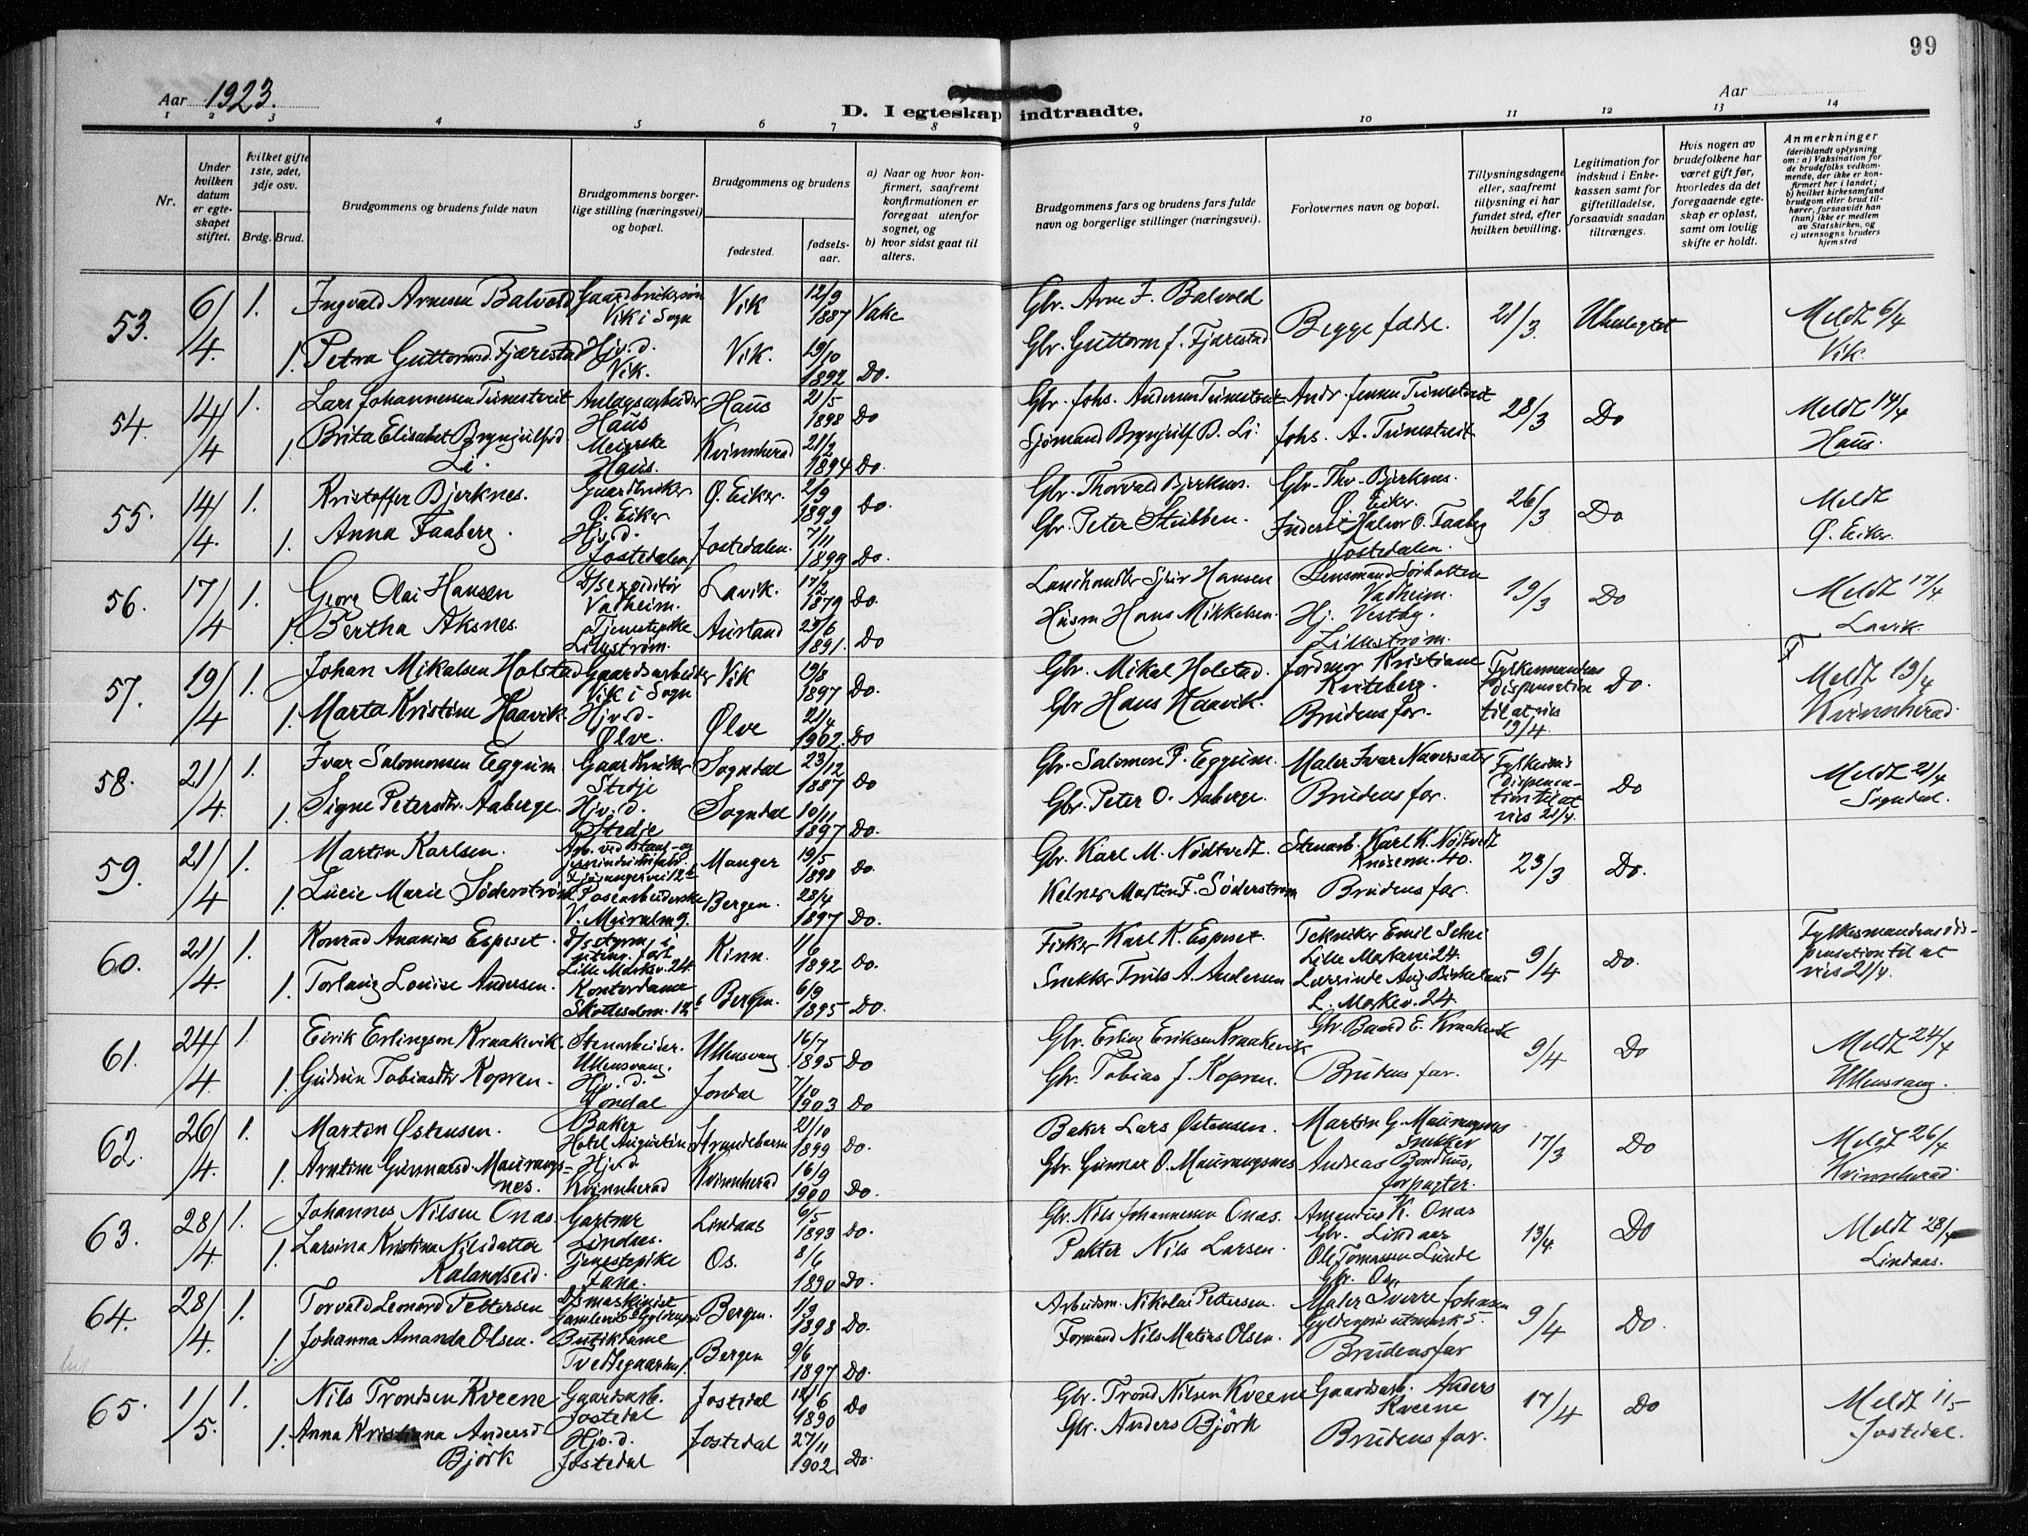 99
Aar 1923.
Aar
D. I egteskap indtraadte.
1 2 3 4 5 6 7 8 9 10 11 12 13 14
Nr.
Under hvilken datum er egteskapet stiftet.
hvilket gifte 1ste, 2det, 3dje osv.
Brdg. Brud.
Brudgommens og brudens fulde navn
Brudgommens borgerlige stilling (næringsvei) og bopæl.
Brudgommens og brudens
fødested.
fødselsaar.
a) Naar og hvor konfirmert, saafremt konfirmationen er foregaat utenfor sognet, og
b) hvor sidst gaat til alters.
Brudgommens fars og brudens fars fulde navn og borgerlige stillinger (næringsvei).
Forlovernes navn og bopæl.
Tillysningsdagene eller, saafremt tillysning ei har fundet sted, efter hvilken bevilling.
Legitimation for indskud i Enkekassen samt for giftetilladelse, forsaavidt saadan tiltrænges.
Hvis nogen av brudefolkene har været gift før, hvorledes da det foregaaende egteskap er opløst, samt om lovlig skifte er holdt.
Anmerkninger (deriblandt oplysning om: a) Vaksination for de brudefolks vedkommende, der ikke er konfirmert her i landet; b) hvilket kirkesamfund brudgom eller brud tilhører, forsaavidt han (hun) ikke er medlem av Statskirken, og c) utensogns bruders hjemsted
53. 6/4. 1. Ingvald Arnesen Balvold Gaardbrukersøn Vik i Sogn Vik 12/9 1887 Gbr. Arne J. Balvold Begge fædre. 21/3. Meldt 6/4 Vik.
1. Petra Guttormsd. Fjærestad Hjv.d. Vik. Vik. 19/10 1892 Do. Gbr. Guttorm J. Fjærestad
54. 14/4 1. Lars Johannessen Tunestveit Anlægsarbeider Haus Haus 21/5 1898 Do Gbr. Johs. Andersen Tunestveit Andr. Jensen Tunestveit 28/3 Do Meldt 14/4 Haus.
1. Brita Elisabet Brynjulfsd. Li. Meierske Haus. Kvinnherad 21/2 1894 Do. Sjømand Brynjulf B. Li. Johs. A. Tunestveit
55. 14/4. 1. Kristoffer Bjerknes. Gaardbruker Ø. Eiker Ø. Eiker. 2/9 1899 Do. Gbr. Thorvald Bjerknes. Gbr. Thv. Bjerknes. Ø. Eiker. 26/3 Do Meldt Ø. Eiker.
1. Anna Faaberg. Hjv.d. Jostedalen Jostedalen. 7/11 1899 Do. Gbr. Peter Stubben. Halvor O. Faaberg Jostedalen.
56. 17/4 1. Georg Olai Hansen D/S expeditør Vadheim. Lavik. 17/2 1879 Do. Landhandler Hansen Lensmand Sørbotten Vadheim. 19/3 Do Meldt 17/4 Lavik.
1. Bertha Aksnes. Tjenestepike Lillestrøm. Aurland 29/6 1891. Do Husm Hans Mikkelsen. Hj. Vestby. Lillestrøm.
57. 19/4 1. Johan Mikalsen Holstad Gaardsarbeider Vik i Sogn Vik 19/8 1897 Do. Gbr. Mikal Holstad. Jordmor Kristiane Kviteberg. Fylkesmandens dispensation til at vies 19/4. Do. Meldt 19/4 Kvinnherad.
1. Marta Kristine Haavik. Hjv.d. Ølve. Ølve 22/4 1902. Do Gbr Hans Haavik. Brudens far.
58. 21/4. 1. Ivar Salomonsen Eggum. Gaardbruker Stedje Sogndal 23/12 1887 Do Gbr. Salomon P. Eggum. Maler Ivar Fylkesm.s dispensation til at vies 21/4. Do Meldt 21/4 Sogndal.
1. Signe Petersdtr. Aaberge. Hjv.d. Stedje Sogndal 10/11 1897 Do. Gbr. Peter O. Aaberge. Brudens far.
59. 21/4 1. Martin Karlsen. Manger 19/5 1898 Do. Gbr. Karl M. Nødtvedt. Stenarb. Karl K. Nødtvedt 23/3 Do.
1. Lucie Marie Söderström Posearbeiderske Bergen. 28/4 1897 Do. Kelner Martin F. Söderström Brudens far.
60. 21/4. 1. Konrad Ananias Espeset. Lille Markev. 24 Kinn. 1892 Do. Fisker Karl K. Espeset. Tekniker Emil Schei Lille Markevei 24 9/4 Do. Fylkesmandens dispensation til at vies 21/4.
1. Torlaug Louise Andersen. Kontordame Bergen. 6/9 1895 Do. Snekker Andersen L. Markev. 24
61. 24/4. 1. Eirik Erlingson Kraakevik. Stenarbeider. Ullensvang. Ullensvang 16/7 1895 Do Gbr. Erling Eriksen Kraakevik Gbr. Baard E. Kraakevik 9/4 Do Meldt 24/4 Ullensvang.
1. Gudrun Tobiasdtr Kopren. Hjv.d. Jondal Jondal 7/10 1903 Do Gbr. Tobias J. Kopren. Brudens far.
62. 26/4. 1. Martin Østensen. Baker Hotel Augustin Strandebarm 21/10 1899 Do. Baker Lars Østensen. Martin G. Maurangsnes Snekker 17/3 Do Meldt 26/4 Kvinnherad
1. Arntine Gunnarsd. Maurangsnes. Hjv.d Kvinnherad Kvinnherad 16/9 1900 Do. Gbr. Gunnar O. Maurangsnes Andreas Bondhus, forpagter.
63. 28/4. 1. Johannes Nilsen Onas. Gartner Lindaas. Lindaas 6/5 1893 Do. Gbr. Nils Johannessen Onas. Amandus K. Onas Gbr. Lindaas 13/4. Do Meldt 28/4 Lindaas.
1. Larsina Kristina Nilsdatter Kalandseid. Tjenestepike Fana. Os. 8/6 1890 Do. Pakter Nils Larsen. Ole Tomassen Lunde Gbr. Os.
64. 28/4. 1. Torvald Leonard Pettersen D/S maskinist Bergen. 1/9 1898 Do. Arbeidsm. Nikolai Pettersen. Maler Sverre Johnsen 9/4 Do.
1. Johanna Amanda Olsen. Butikdame Bergen 9/6 1897 Do. Formand Nils Matias Olsen. Brudens far
65. 1/5. 1. Nils Trondsen Kveene Gaardsarb. Jostedal Jostedal 12/6 1890 Do Gbr. Trond Nilsen Kveene Gaardsarb. Anders Kveene 17/4 Do Meldt 1/5 Jostedal.
1. Anna Kristiana Andersd Björk Hjv.d. Jostedal Jostedal 27/11 1902 Do. Gbr. Anders Björk Brudens far.